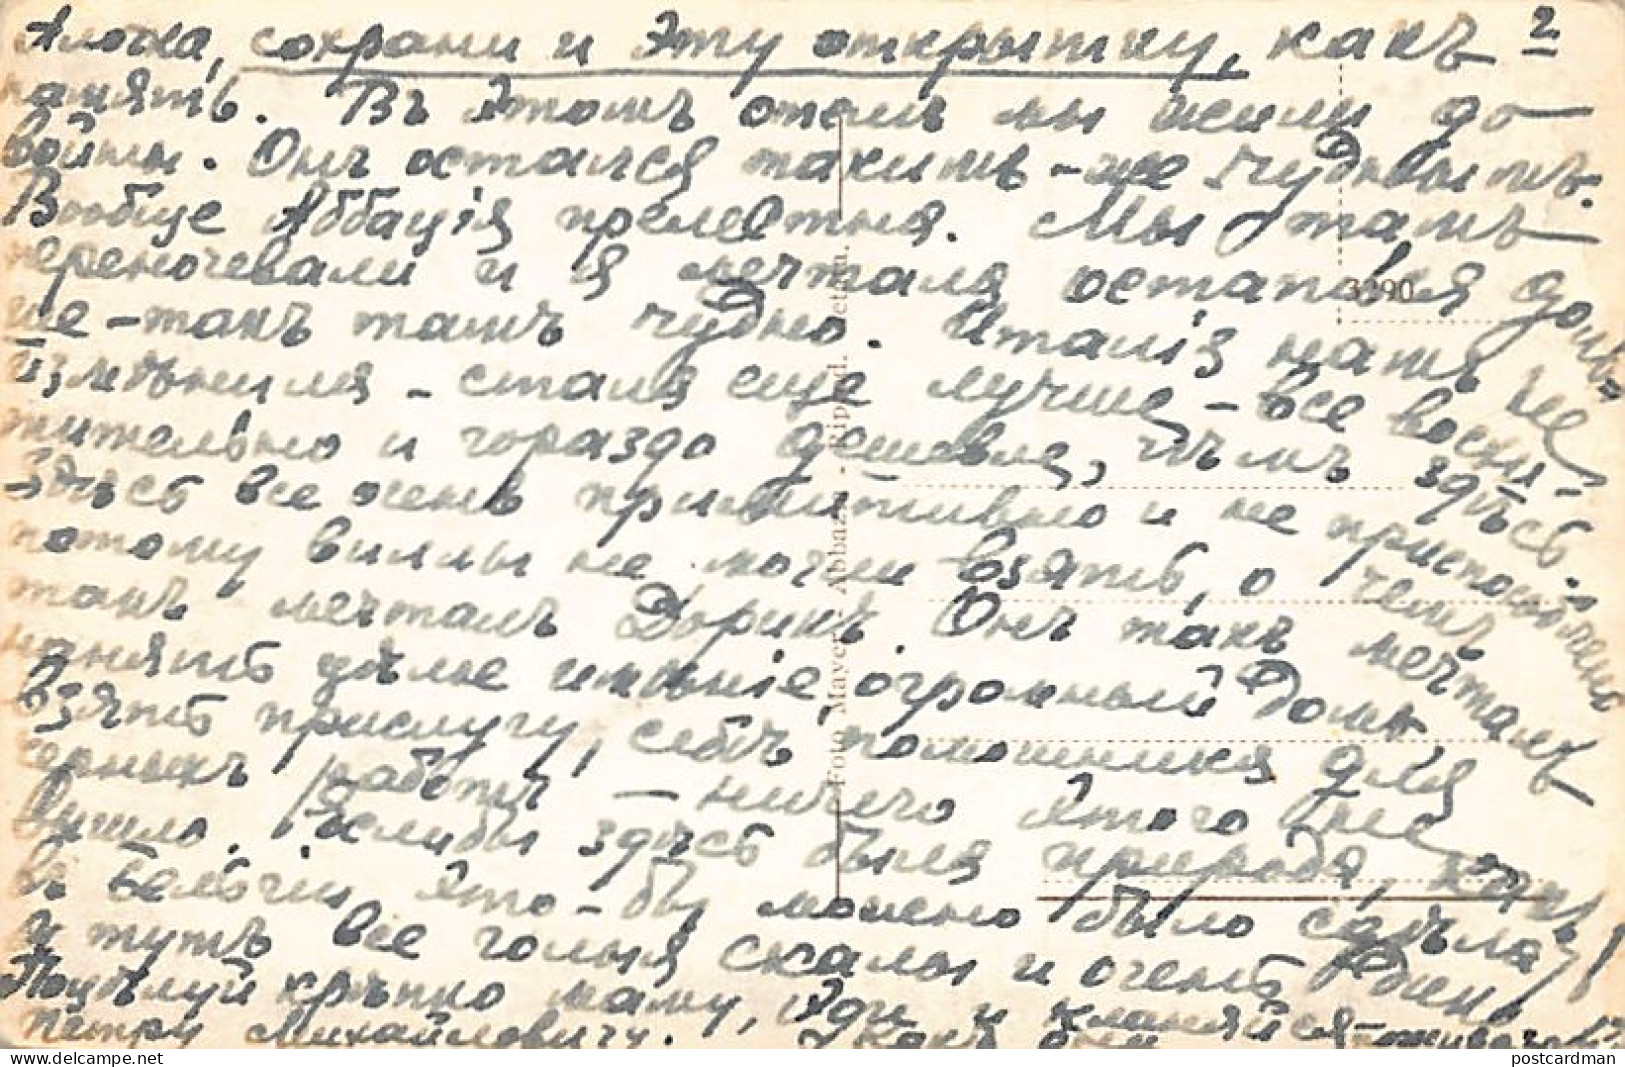 Алоша, сохрани и эту открытку, какъ 2
память. Въ этомъ отелѣ мы жили до
войны. Онъ остался такимъ-же чуднымъ.
Вообще Аббація прелестная. Мы тамъ
переночевали и я мечтала остаться доль-
ше - такъ тамъ чудно. Италія насъ не
измѣнила - стала еще лучше - все восхи-
тительно и гораздо дешевле, чѣмъ здѣсь.
Здѣсь все очень примитивно и не приспособлено
потому виллы не могли взять, о чемъ
такъ мечталъ Дорикъ. Онъ такъ мечталъ
нанять цѣлое имѣніе, огромный домъ
взять прислугу, себѣ помошника для
черныхъ работъ - ничего этого не
вышло. Еслибы здѣсь была природа, какъ
въ Бельгіи это-бы можно было сдѣлать,
а тутъ все голыя скалы и очень
Поцѣлуй крѣпко маму, Эди и кланяйся
Петру Михайловичу. Какъ
3290
Foto Mayer, Abbazia - Ripr. ed. vietata.
postcardman
www.delcampe.net